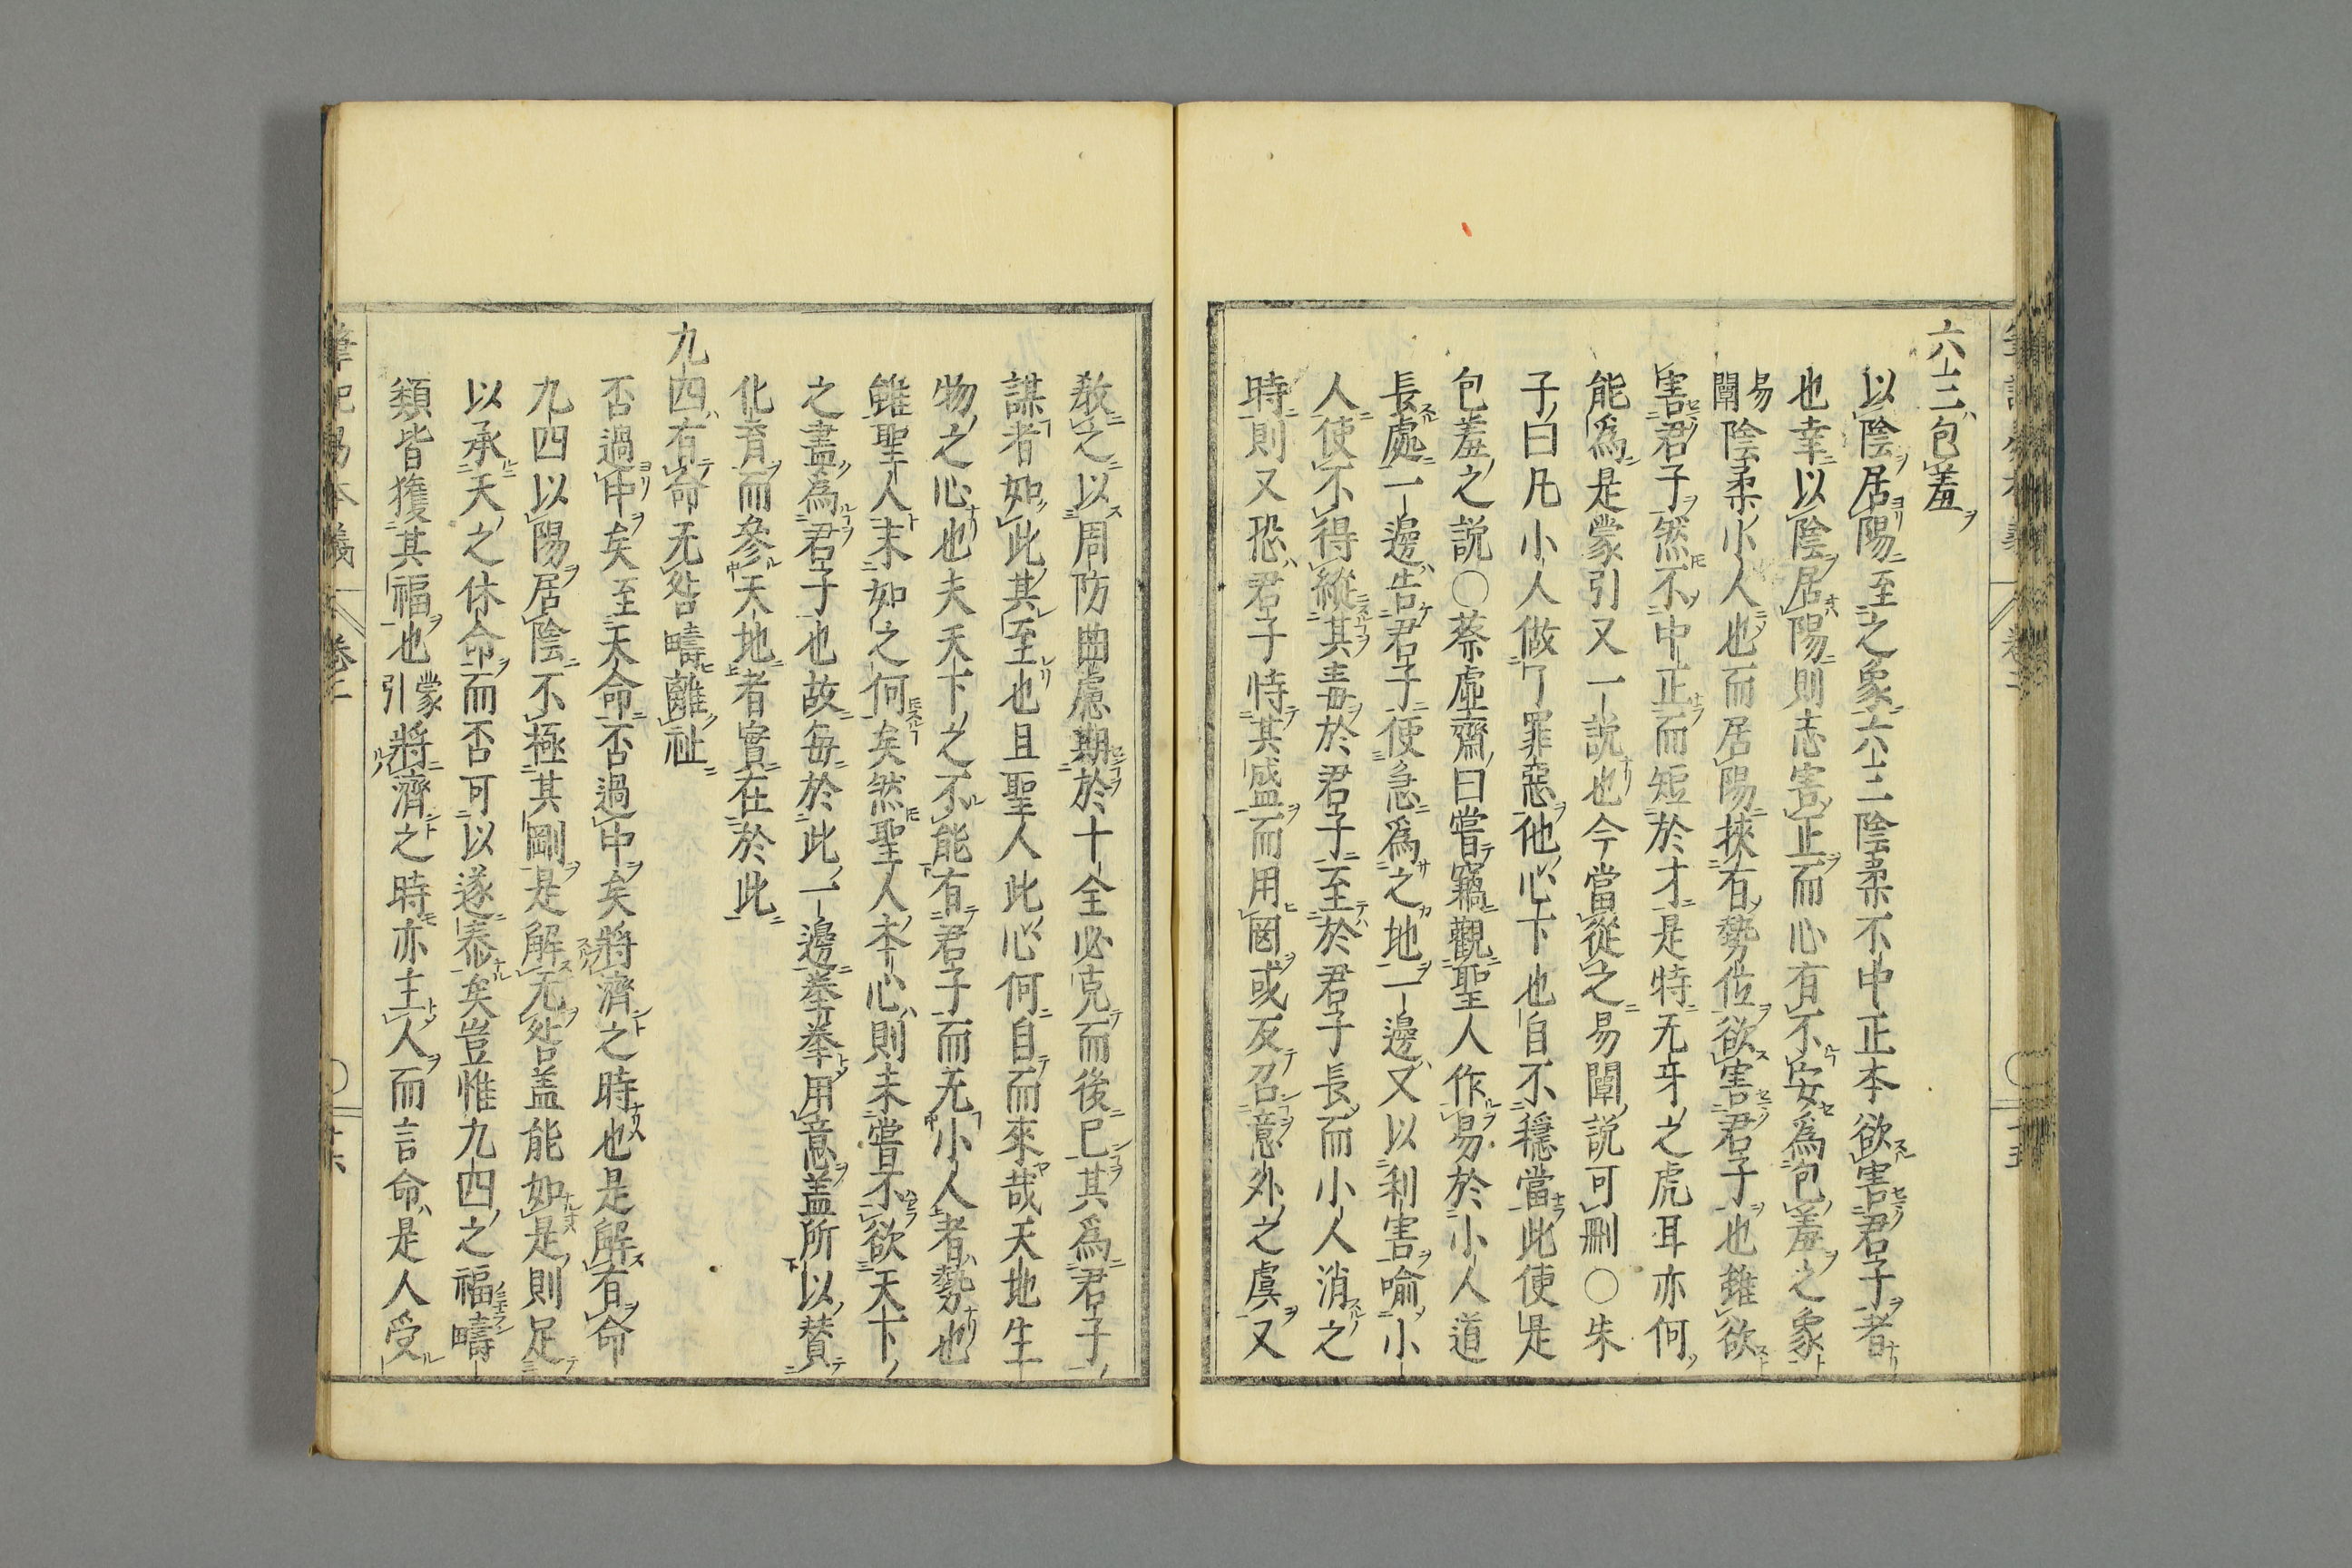 六三包羞
以陰居陽至之象六三陰柔不中正本欲害君子者
也幸以陰居陽則志害正而心有不安為包羞之象
易闡陰柔小人也而居陽挾有勢位欲害君子也雖欲
害君子然不中正而短於才是特无牙之虎耳亦何
能爲是蒙引又一說也今當從之易闡說可刪○朱
子曰凡小人做了罪惡他心下也自不穩當此便是
包羞之說○蔡虛齋曰嘗竊觀聖人作易於小人道
長處一邊告君子便急爲之地一邊又以利害喻小
人使不得縱其毒於君子至於君子長而小人消之
時則又恐君子恃其盛而用罔或反召意外之虞又
敎之以周防曲慮期於十全必克而後已其爲君子
謀者如此其至也且聖人此心何自而來哉天地生
物之心也夫天下之不能有君子而无小人者勢也
雖聖人末如之何矣然聖人本心則未嘗不欲天下
之盡為君子也故每於此一邊拳拳用意盖所以賛
化育而參天地者實在於此
九四有命无咎疇離祉
否過中矣至天命否過中矣將濟之時也是解有命
九四以陽居陰不極其剛是解无咎盖能如是則足
以承天之休命而否可以遂泰矣豈惟九四之福疇
類皆獲其福也蒙引將濟之時亦主人而言命是人受
卷二